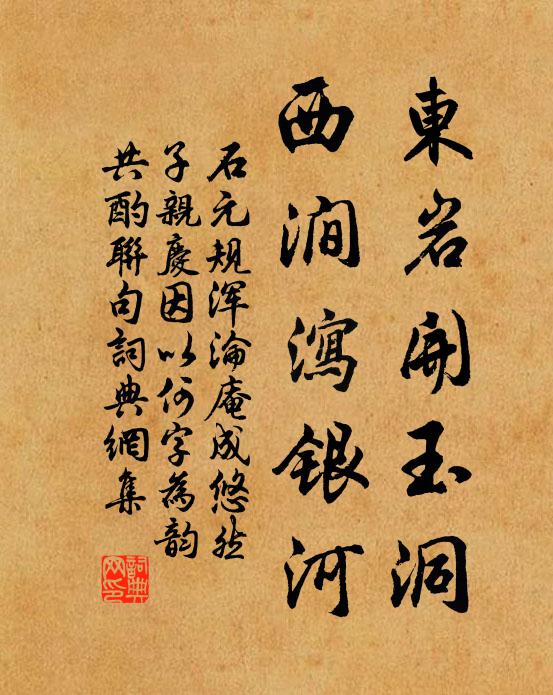 東岩開玉洞
西澗瀉銀河
石元規渾淪庵成悠然
子親慶因以何字為韵
共酌聯句詞典網集
詞典网印